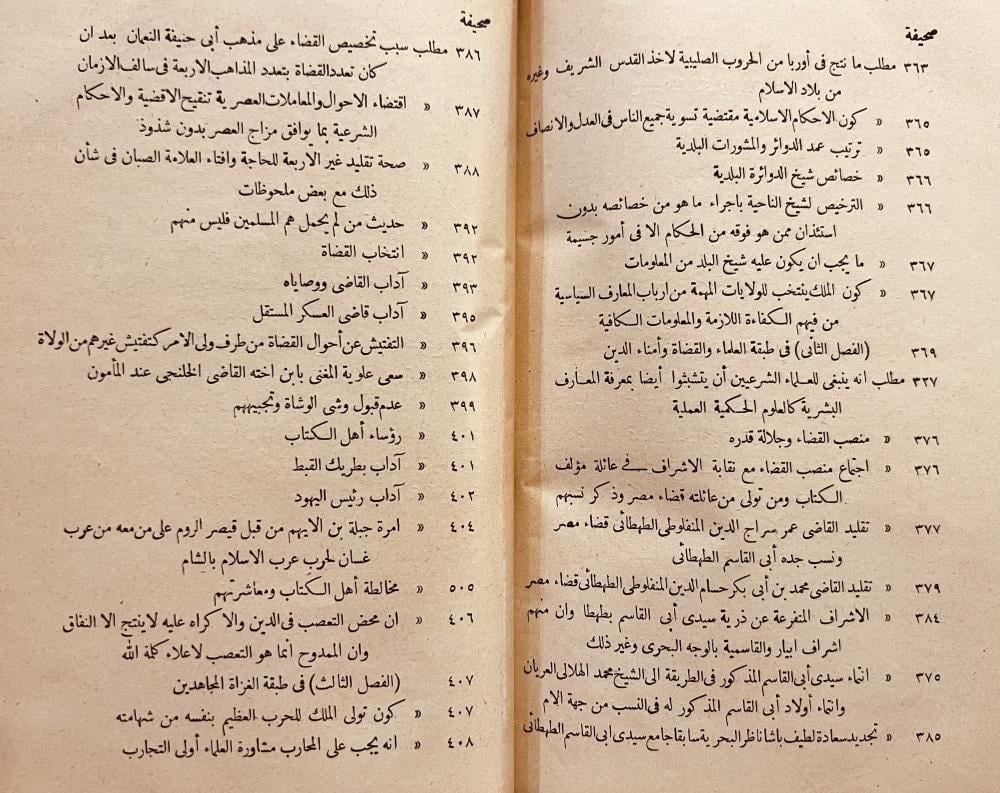 صحيفة
٣٦٣ مطلب ما نتج فى أوربا من الحروب الصليبية لاخذ القدس الشريف وغيره
من بلاد الاسلام
٣٦٥ « كون الاحكام الاسلامية مقتضية تسوية جميع الناس فى العدل والانصاف
٣٦٥ « ترتيب عمد الدوائر والمشورات البلدية
٣٦٦ « خصائص شيخ الدوائرة البلدية
٣٦٦ « الترخيص لشيخ الناحية باجراء ما هو من خصائصه بدون
استئذان ممن هو فوقه من الحكام الا فى أمور جسيمة
٣٦٧ « ما يجب ان يكون عليه شيخ البلد من المعلومات
٣٦٧ « كون الملك ينتخب للولايات المهمة من ارباب المعارف السياسية
من فيهم الكفاءة اللازمة والمعلومات الكافية
٣٦٩ (الفصل الثانى) فى طبقة العلماء والقضاة وأمناء الدين
٣٢٧ مطلب انه ينبغى للعلماء الشرعيين أن يتشبثوا أيضا بمعرفة المعارف
البشرية كالعلوم الحكمية العملية
٣٧٦ « منصب القضاء وجلالة قدره
٣٧٦ « اجتماع منصب القضاء مع نقابة الاشراف فى عائلة مؤلف
الكتاب ومن تولى من عائلته قضاء مصر وذكر نسبهم
٣٧٧ « تقليد القاضى عمر سراج الدين المنفلوطى الطهطائى قضاء مصر
ونسب جده أبى القاسم الطهطائى
٣٧٩ « تقليد القاضى محمد بن أبى بكر حسام الدين المنفلوطى الطهطائى قضاء مصر
٣٨٤ « الاشراف المتفرعة عن ذرية سيدى أبى القاسم بطهطا وان منهم
اشراف ابيار والقاسمية بالوجه البحرى وغير ذلك
٣٧٥ « انتماء سيدى أبى القاسم المذكور فى الطريقة الى الشيخ محمد الهلالى العريان
وانتماء أولاد أبى القاسم المذكور له فى النسب من جهة الام
٣٨٥ « تجديد سعادة لطيف باشا ناظر البحرية سابقا جامع سيدى ابى القاسم الطهطائى
صحيفة
٣٨٦ مطلب سبب تخصيص القضاء على مذهب أبى حنيفة النعمان بعد ان
كان تعدد القضاة بتعدد المذاهب الاربعة فى سالف الازمان
٣٨٧ « اقتضاء الاحوال والمعاملات العصرية تنقيح الاقضية والاحكام
الشرعية بما يوافق مزاج العصر بدون شذوذ
٣٨٨ « صحة تقليد غير الاربعة للحاجة وافتاء العلامة الصبان فى شأن
ذلك مع بعض ملحوظات
٣٩٢ « حديث من لم يحمل هم المسلمين فليس منهم
٣٩٢ « انتخاب القضاة
٣٩٣ « آداب القاضى ووصاياه
٣٩٥ « آداب قاضى العسكر المستقل
٣٩٦ « التفتيش عن أحوال القضاة من طرف ولى الامر كتفتيش غيرهم من الولاة
٣٩٨ « سعى علوية المغنى بابن اخته القاضى الخلنجى عند المأمون
٣٩٩ « عدم قبول وشى الوشاة وتجبيههم
٤٠١ « رؤساء أهل الكتاب
٤٠١ « آداب بطريك القبط
٤٠٢ « آداب رئيس اليهود
٤٠٤ « امرة جبلة بن الايهم من قبل قيصر الروم على من معه من عرب
غسان لحرب عرب الاسلام بالشام
٥٠٥ « مخالطة أهل الكتاب ومعاشرتهم
٤٠٦ « ان محض التعصب فى الدين والاكراه عليه لا ينتج الا النفاق
وان الممدوح أنما هو التعصب لاعلاء كلمة الله
٤٠٧ (الفصل الثالث) فى طبقة الغزاة المجاهدين
٤٠٧ « كون تولى الملك للحرب العظيم بنفسه من شهامته
٤٠٨ « انه يجب على المحارب مشاورة العلماء أولى التجارب